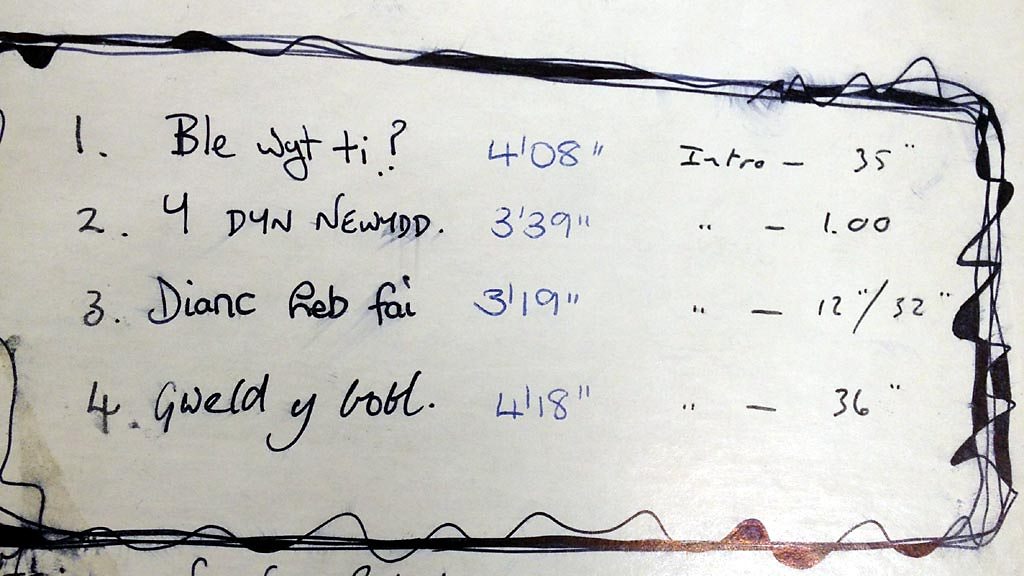 1. Ble wyt ti? 4'08" Intro - 35"
2. Y DYN NEWYDD. 3'39" " - 1.00
3. Dianc heb fai 3'19" " - 12"/32"
4. Gweld y bobl. 4'18" " - 36"